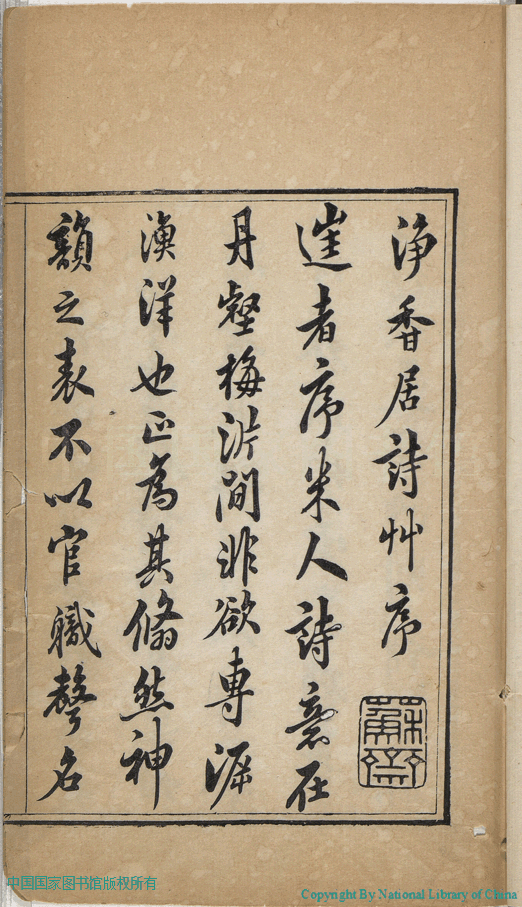 淨香居詩艸序
蘇齋
往者序米人詩意在
丹壑梅沜間非欲專泥
漁洋也正為其翛然神
韻之表不以官職聲名
中国国家图书馆版权所有
Copyright By National Library of China